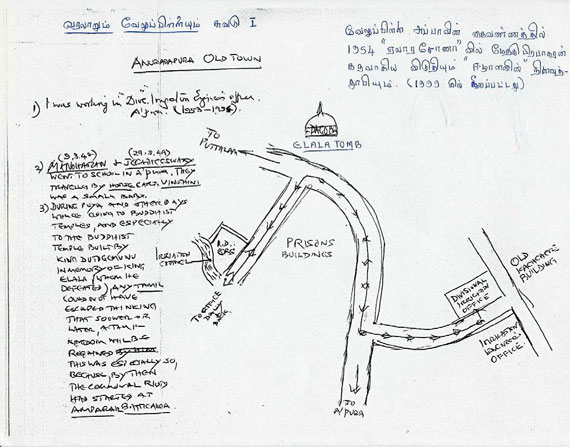 வரலாறும் வேலுப்பிள்ளையும் சுவடு I
வேலுப்பிள்ளை அப்பாவின் கைவண்ணத்தில்
1954
(1999 இல் கீறப்பட்டது)
ANURADAPURA OLD TOWN
1) I was working in Divl. Irrigation Engineers office,
A'pura.
TO
PUTTALAM
DAGOBA
ELALA TOMB
(29.3.49)
2) MANOHARAN &
WENT TO SCHOOL IN A'PURA. THEY
TRAVELLED BY HORSE CART. VINOTHINI
WAS A SMALL BABY.
3) DURING POYA AND OTHER DAYS
WHILE GOING TO BUDDHIST
TEMPLES, AND ESPECIALLY
TO THE BUDDHIST
TEMPLE BUILT BY
KING DUTUGEMUNU
IN MEMORY OF KING
ELALA (WHOM HE
DEFEATED), ANY TAMIL
COULD NOT HAVE
ESCAPED THINKING
THAT SOONER OR
LATER, A TAMIL
KINGDOM WILL BE
REGAINED
THIS WAS ESPECIALLY SO,
BECAUSE, BY THEN
THE COMMUNAL RIOTS
HAD STARTED AT
AMPARAI, BATTICALOA
IRRIGATION
CHANNEL
PRISONS
BUILDINGS
OLD
KACHCHERI
BUILDING
DIVISIONAL
IRRIGATION
OFFICE
IRRIGATION
ENGINEER'S
OFFICE.
TO
A'PURA